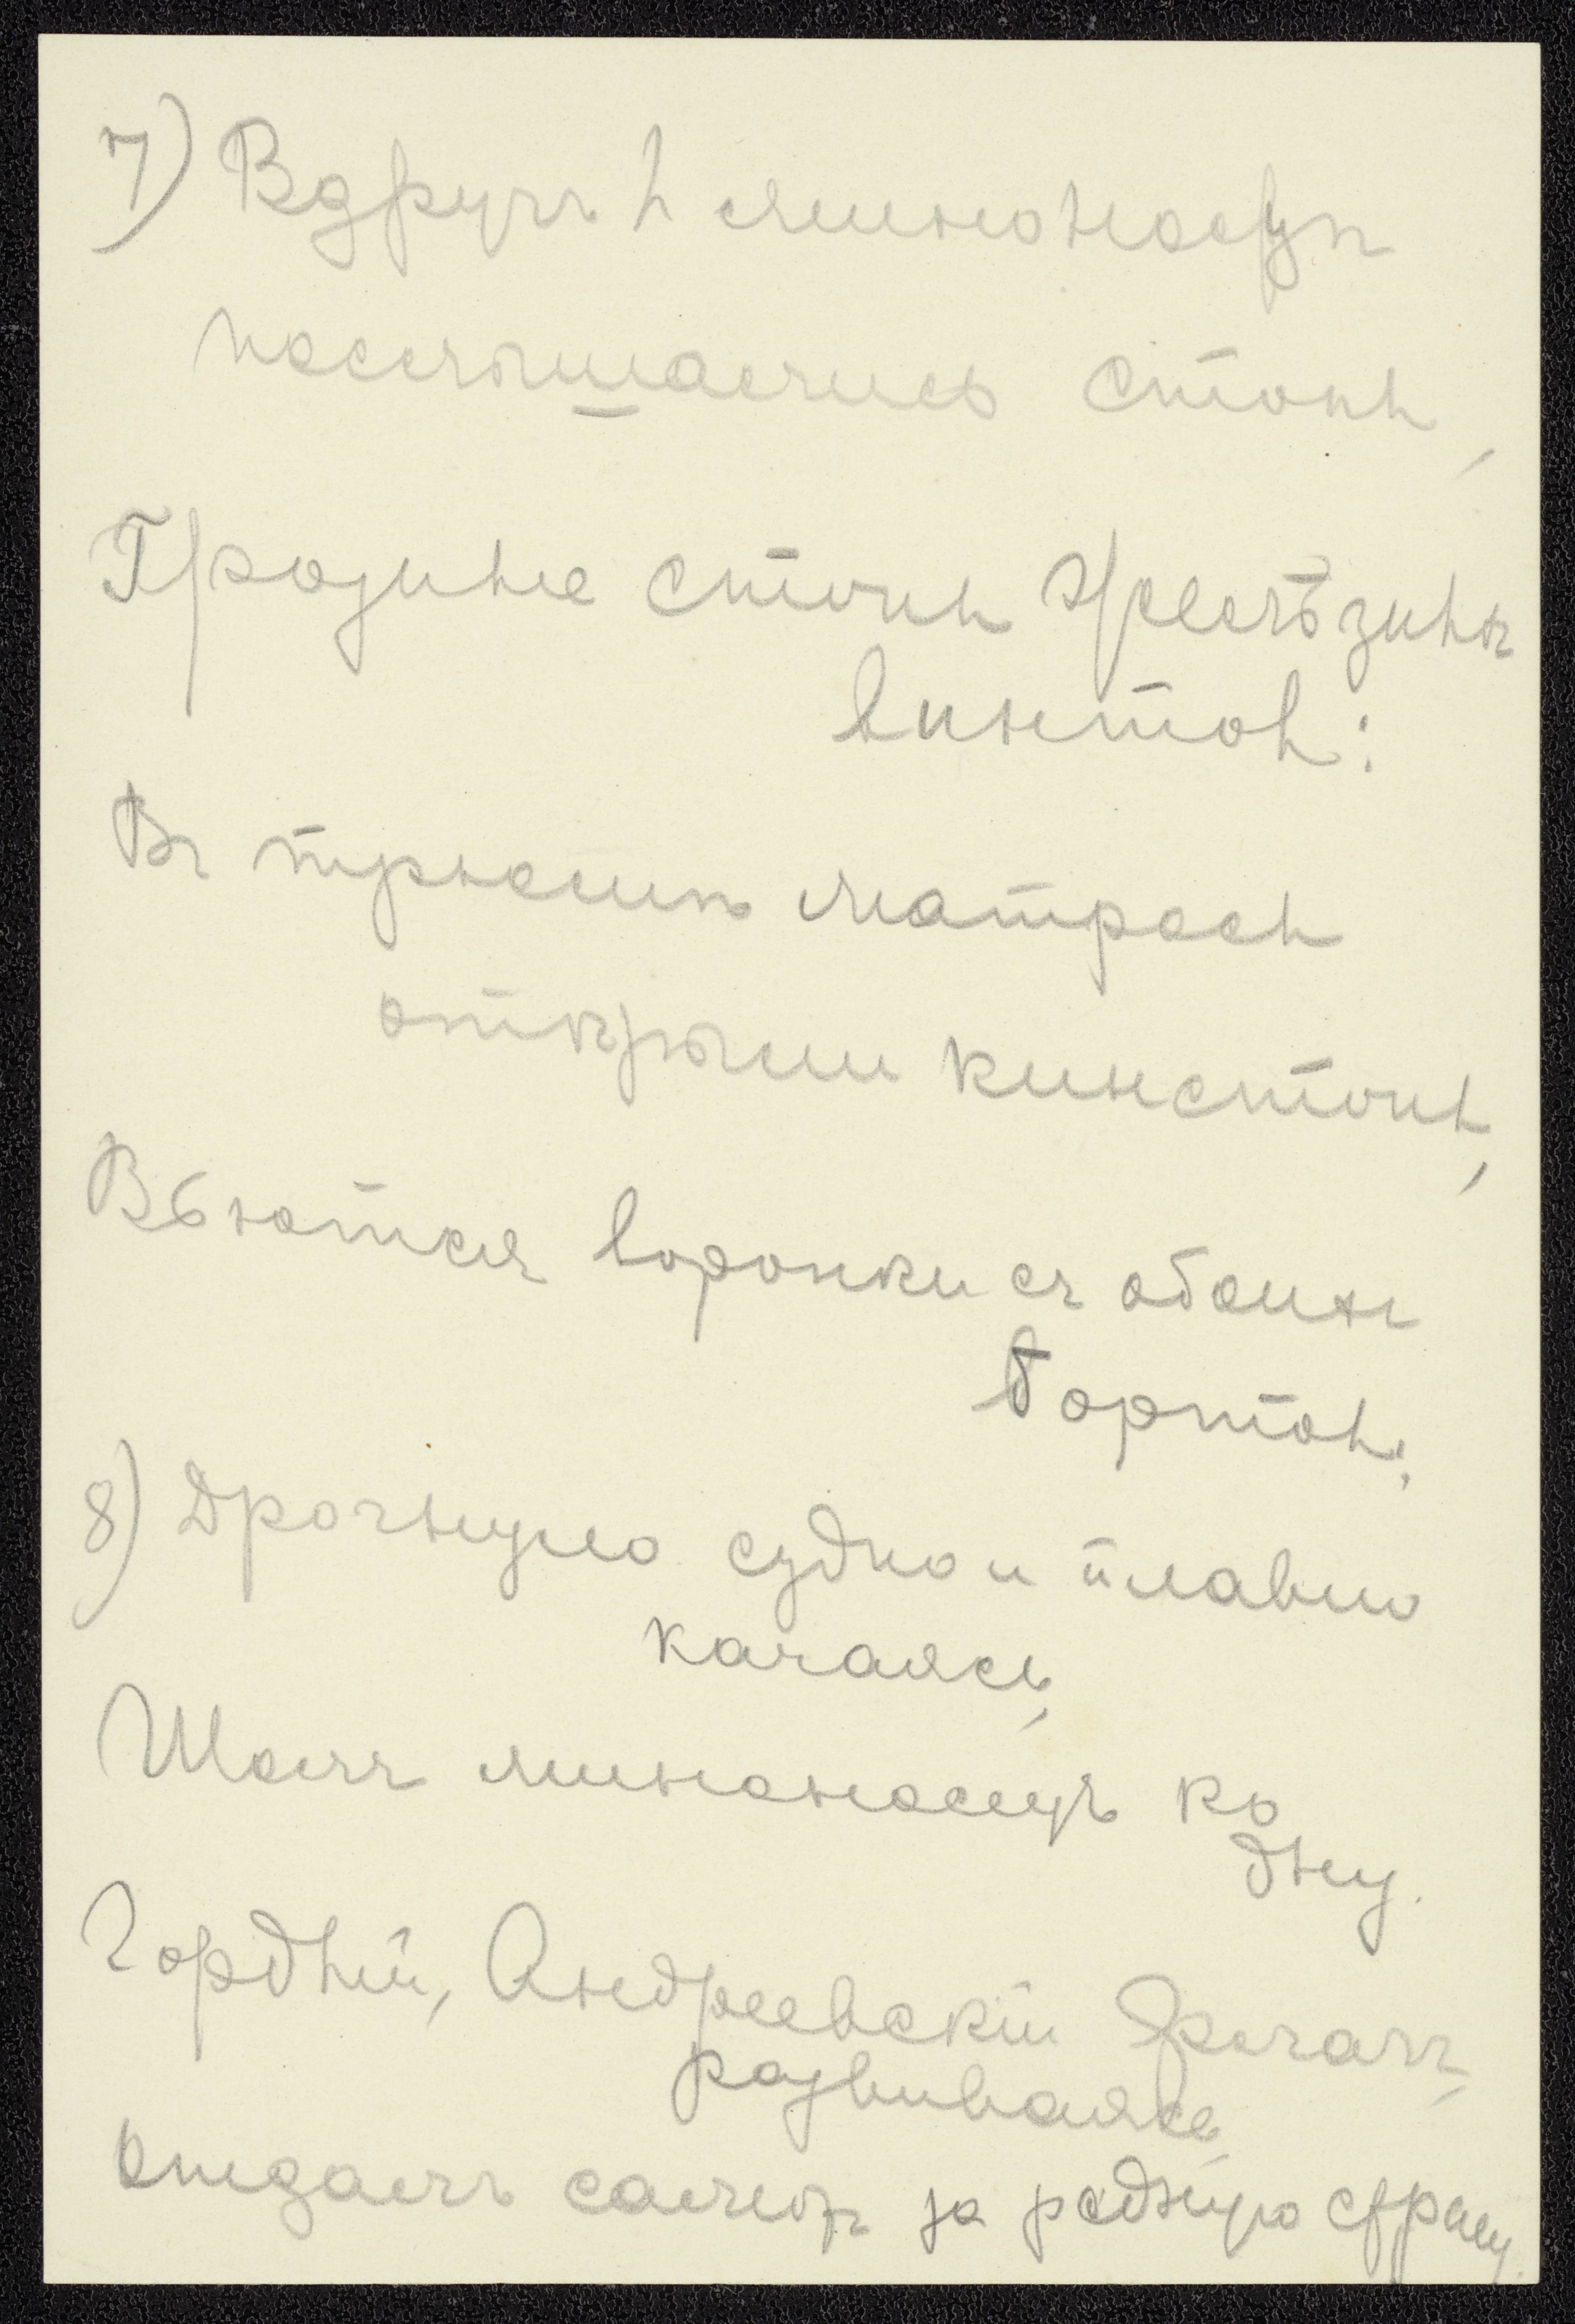 7) Вдругъ в миноносцѣ
послышались стоны,
Грозные стоны желѣзныхъ
винтов:
Въ трюмѣ матросы
открыли кинстоны,
Вьются воронки съ обоихъ
бортов.
8) Дрогнуло судно и плавно
качаясь,
Шолъ миноносецъ ко
дну.
Гордый, Андреевскій Флагъ,
развиваясь,
Отдалъ салютъ за родную страну.